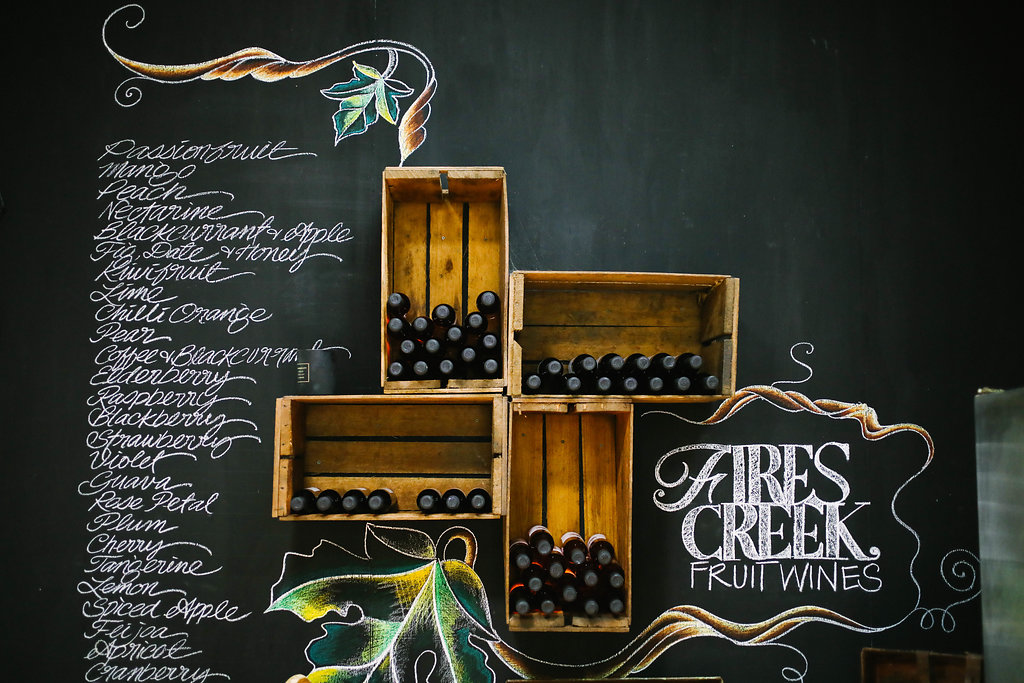 Passionfruit
Mango
Peach
Nectarine
Blackcurrant & Apple
Fig, Date & Honey
Kiwifruit
Lime
Chilli Orange
Pear
Coffee & Blackcurrant
Elderberry
Raspberry
Blackberry
Strawberry
Violet
Guava
Rose Petal
Plum
Cherry
Tangerine
Lemon
Spiced Apple
Feijoa
Apricot
Cranberry
FIRES
CREEK
FRUIT WINES